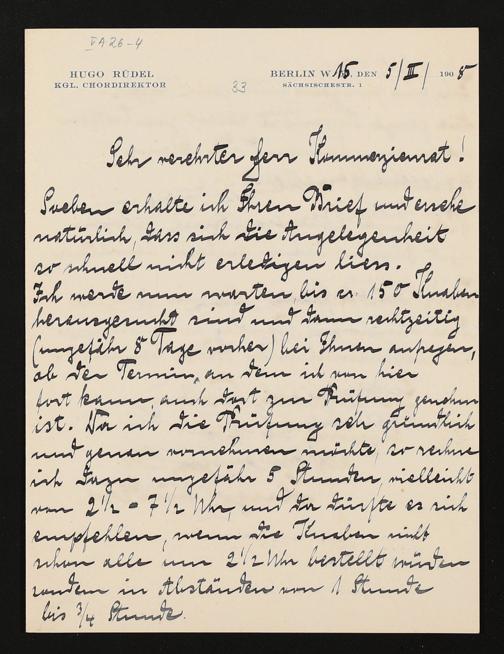 VA26-4
HUGO RÜDEL
KGL. CHORDIREKTOR
33
BERLIN W. 15, DEN 5/III/ 1908
SÄCHSISCHESTR. 1
Sehr verehrter Herr Kommerzienrat!
Soeben erhalte ich Ihren Brief und ersehe
natürlich, dass sich die Angelegenheit
so schnell nicht erledigen liess.
Ich werde nun warten, bis cr. 150 Knaben
herausgesucht sind und dann rechtzeitig
(ungefähr 8 Tage vorher) bei Ihnen anfragen,
ob der Termin, an dem ich von hier
fort kann, auch dort zur Prüfung genehm
ist. Da ich die Prüfung sehr gründlich
und genau vornehmen möchte, so rechne
ich dazu ungefähr 5 Stunden, vielleicht
von 2 1/2 - 7 1/2 Uhr, und da dürfte es sich
empfehlen, wenn die Knaben nicht
schon alle um 2 1/2 Uhr bestellt würden
sondern in Abständen von 1 Stunde
bis 3/4 Stunde.